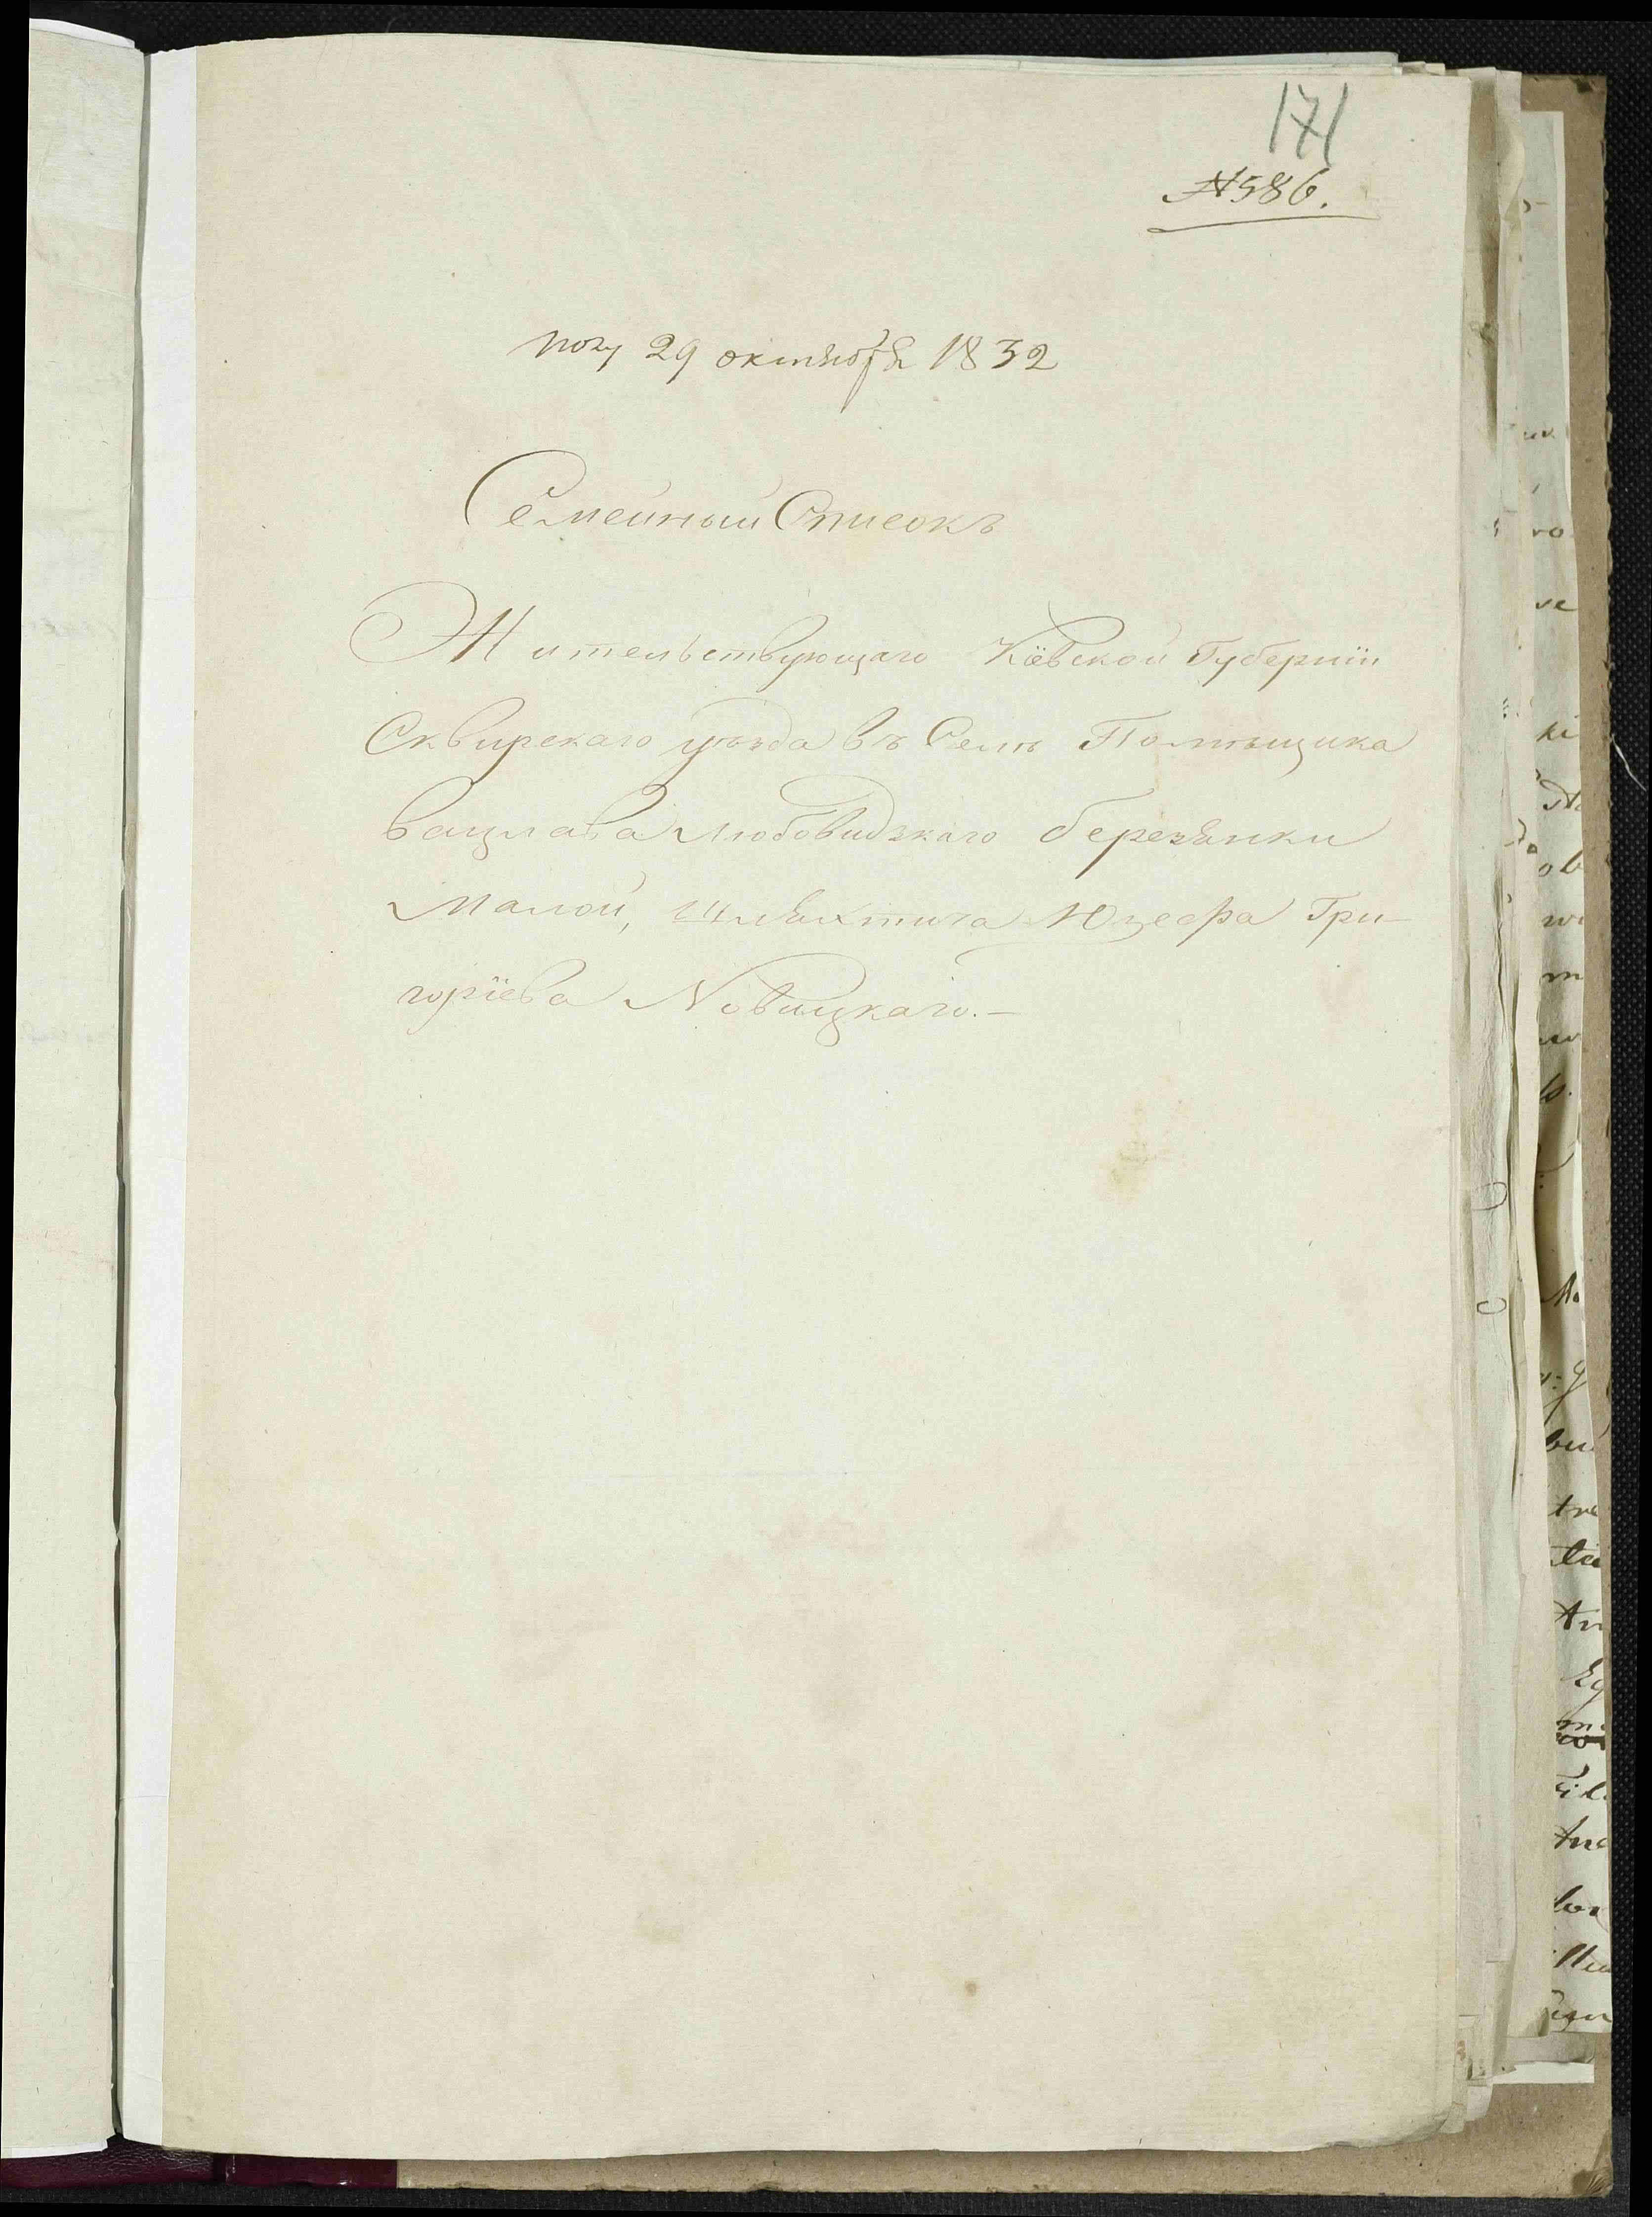 171
№586.
пол 29 октября 1832
Семейный Списокъ
Жительствующаго Кіевской Губерніи
Сквирскаго уезда въ Селѣ Помѣщика
Вацлава Любовидзкаго березянки
Малой, Шляхтича Юзефа Гри-
горіева Новицкаго.-